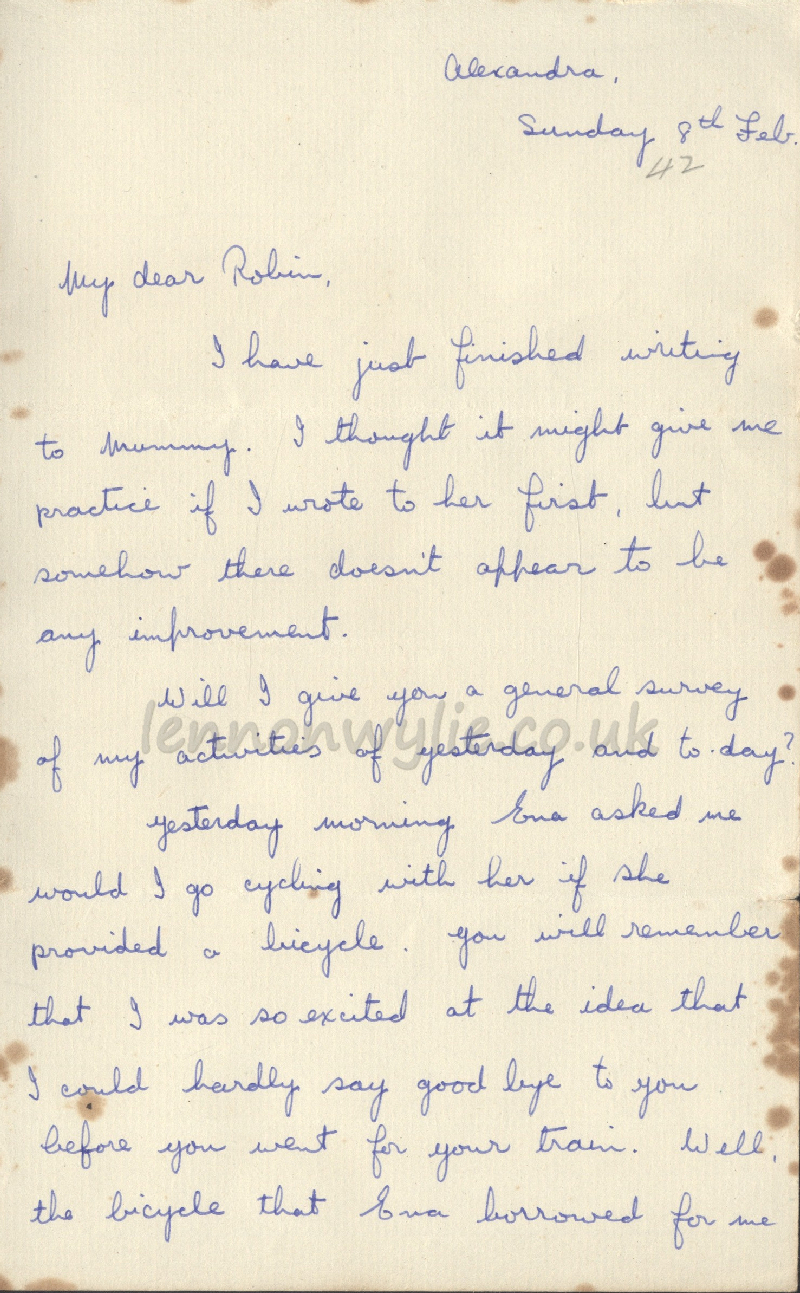 Alexandra,
Sunday 8th Feb.
42
My dear Robin,
I have just finished writing
to Mummy. I thought it might give me
practice if I wrote to her first, but
somehow there doesn't appear to be
any improvement.
Will I give you a general survey
lennonwylie.co.uk
of my activities of yesterday and to-day?
Yesterday morning Ena asked me
would I go cycling with her if she
provided a bicycle. You will remember
that I was so excited at the idea that
I could hardly say good bye to you
before you went for your train. Well,
the bicycle that Ena borrowed for me